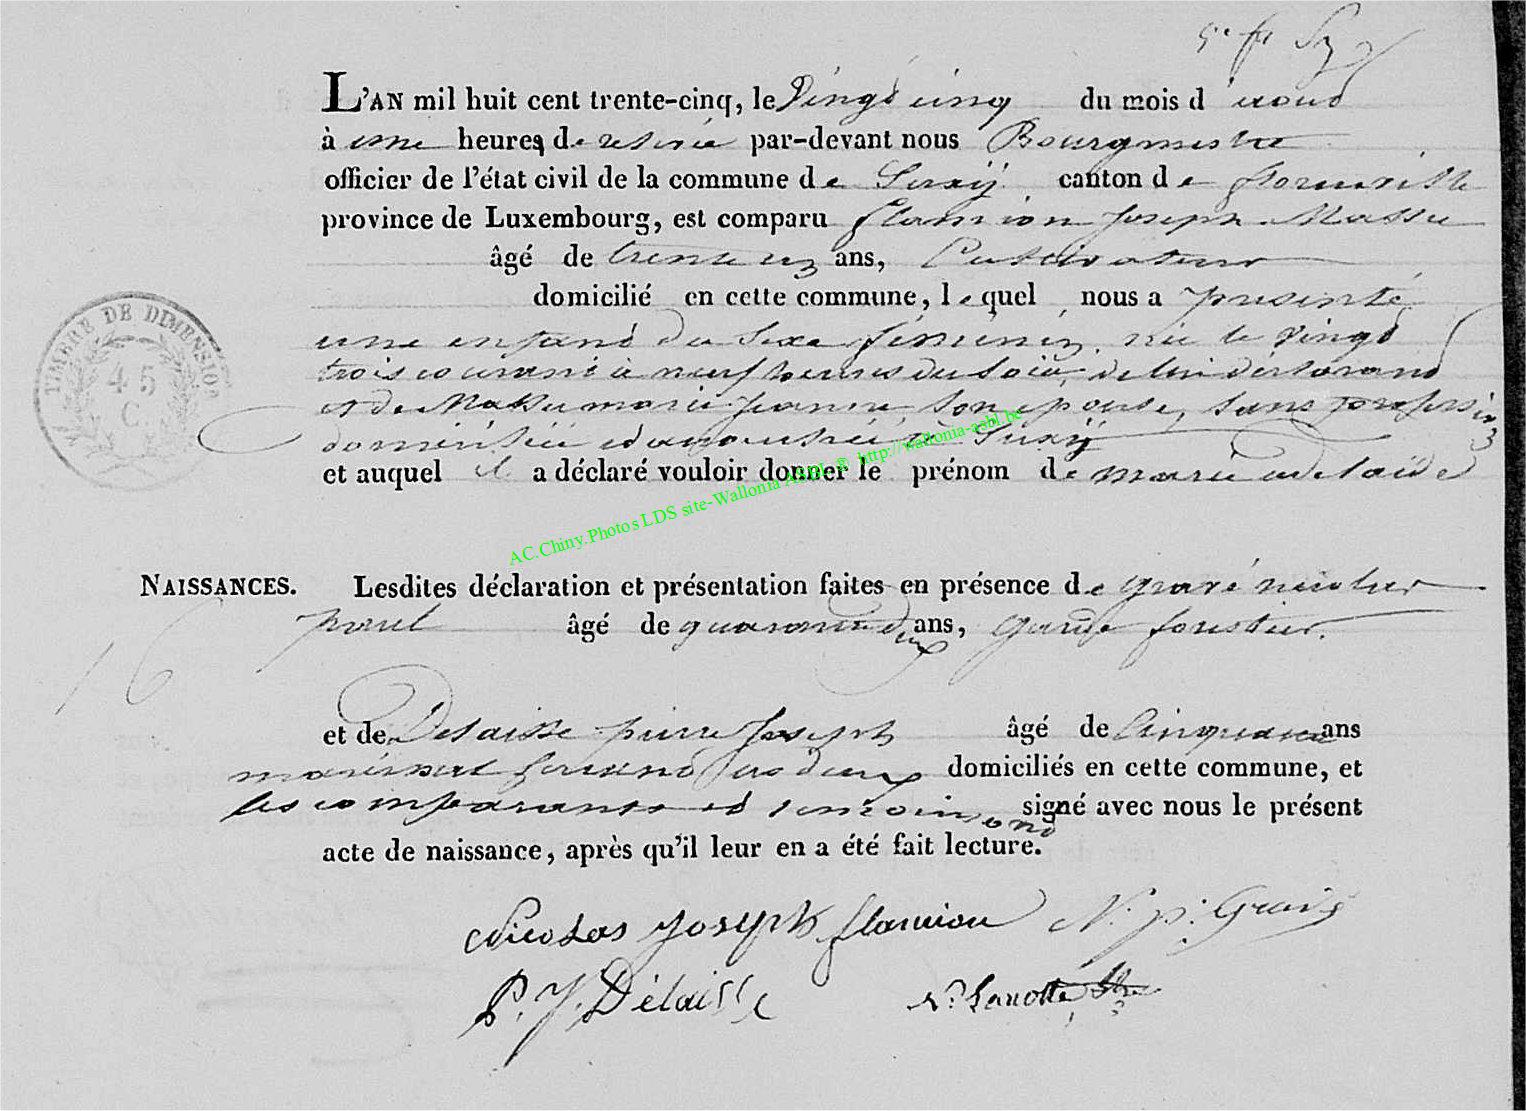 5e fr Sy
L'AN mil huit cent trente-cinq, le Vingt cinq du mois d'aout
à une heures de relevée par-devant nous Bourgmestre
officier de l'état civil de la commune de Suxÿ canton de florenville
province de Luxembourg, est comparu flamion Joseph
âgé de trente ans, Cultivateur
domicilié en cette commune, lequel nous a presenté
une enfant du Sexe féminin, née le vingt
trois courant à neuf heures du soir, de lui déclarant
et de marie jeanne son epouse, sans profession
domiciliée à Suxÿ
et auquel il a déclaré vouloir donner le prénom de marie adelaïde
TIMBRE DE DIMENSION
45
C.
AC.Chiny.Photos LDS site-Wallonia ASBL ® http://wallonia-asbl.be
NAISSANCES. Lesdites déclaration et présentation faites en présence de gravé nicolas
paul âgé de quarante deux ans, garde forestier.
16
et de Delaisse pierre Joseph âgé de Cinquante ans
marechal ferrand les deux domiciliés en cette commune, et
les comparants et temoins ont signé avec nous le présent
acte de naissance, après qu'il leur en a été fait lecture.
Nicolas Joseph flamion N. p. Gravé
P. J. Délaisse N. Lanotte